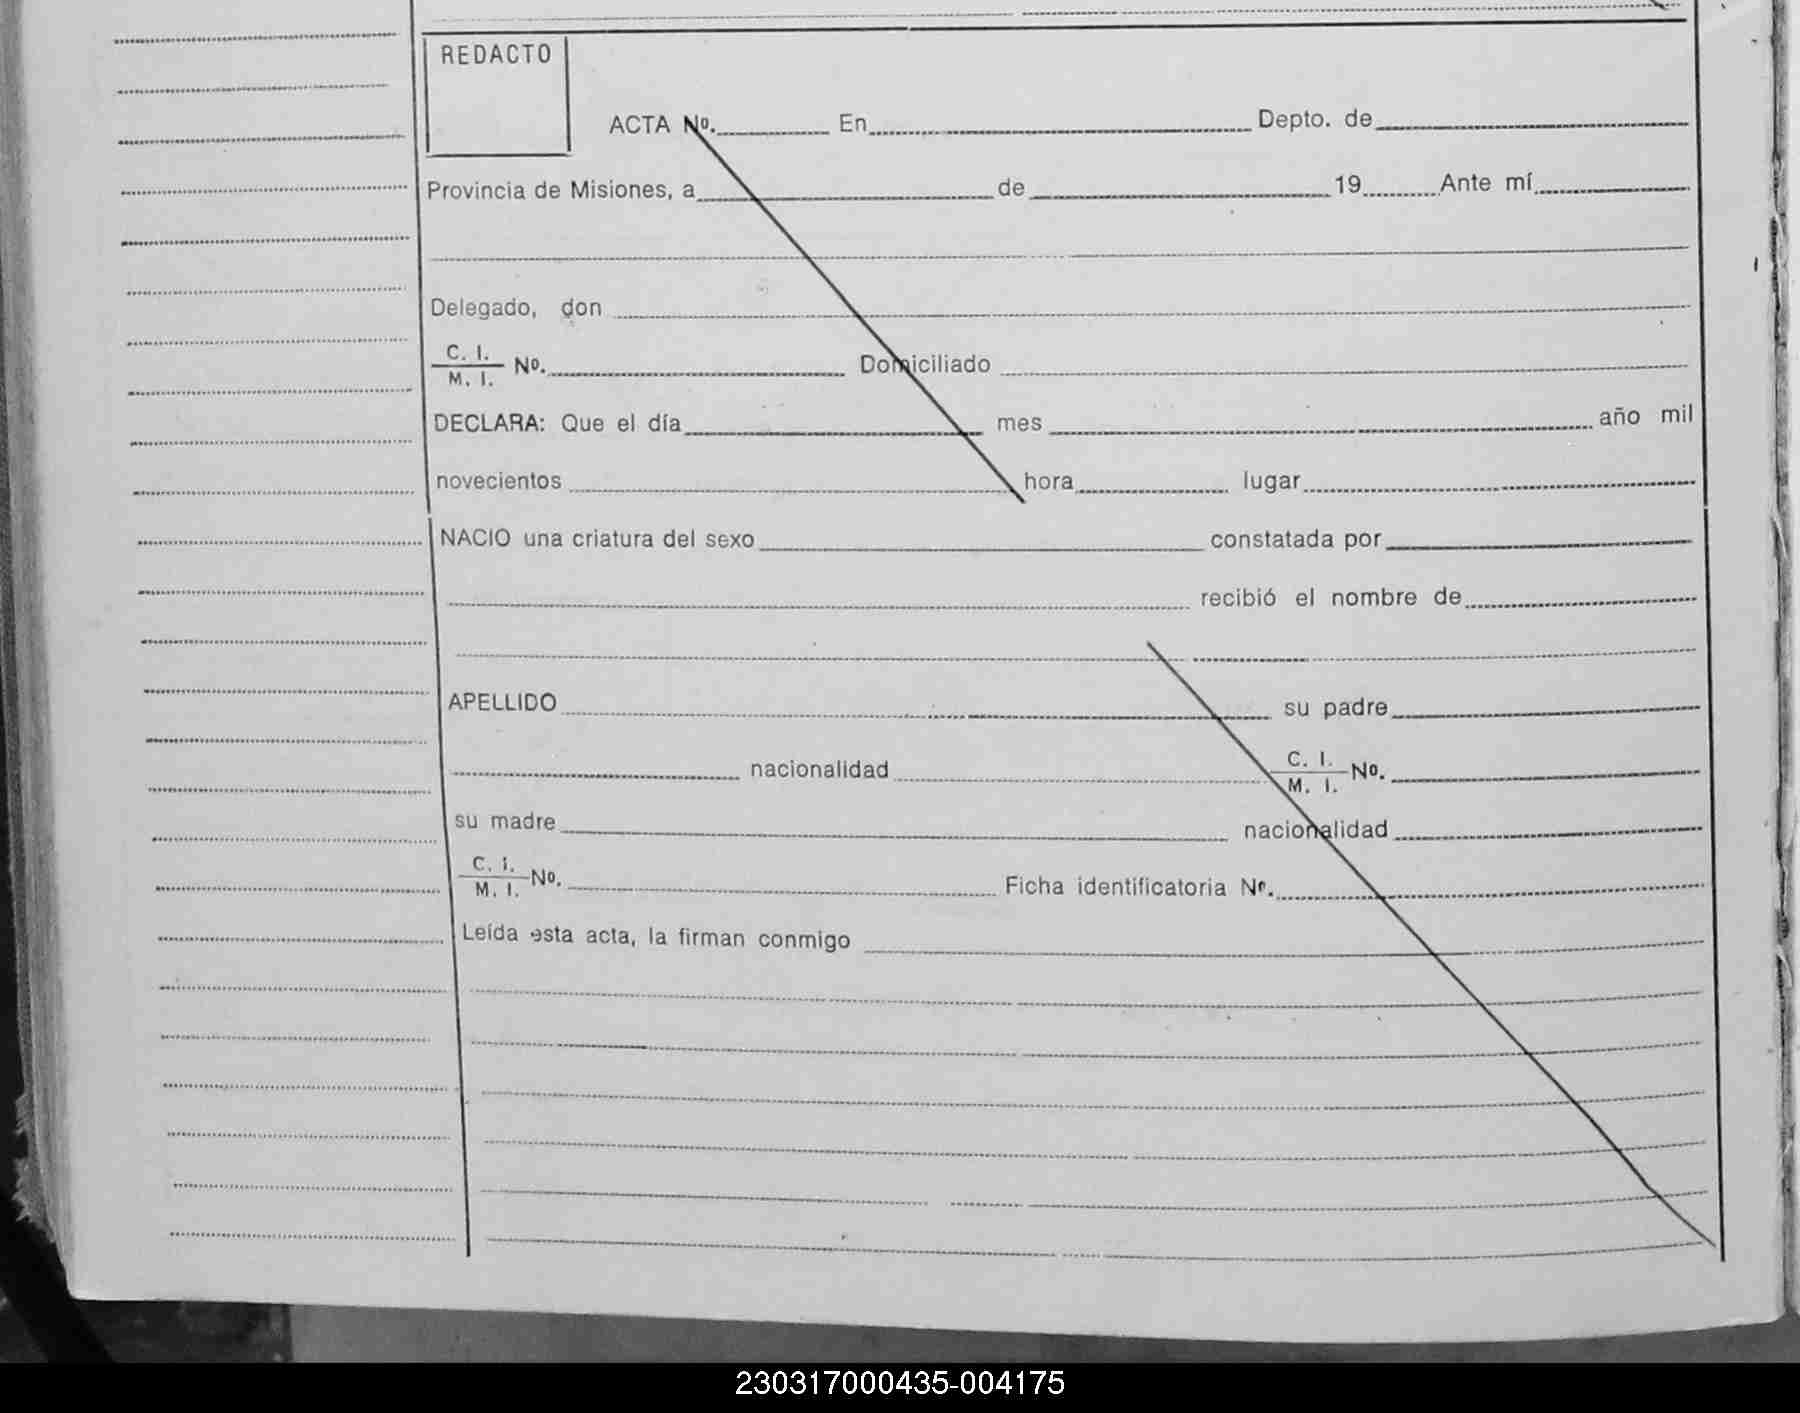 REDACTO
ACTA Nº. En Depto. de
Provincia de Misiones, a de 19 Ante mí
Delegado, don
C. I.
M. I. Nº. Domiciliado
DECLARA: Que el día mes año mil
novecientos hora lugar
NACIO una criatura del sexo constatada por
recibió el nombre de
APELLIDO su padre
nacionalidad C. I.
M. I. Nº.
su madre nacionalidad
C. I.
M. I. Nº. Ficha identificatoria Nº.
Leída esta acta, la firman conmigo
230317000435-004175